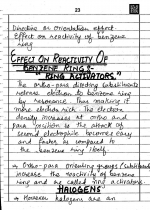 23
Directive or orientation effect
Effect on reactivity of benzene
ring
EFFECT ON REACTIVITY OF
BENZENE RING:
"RING ACTIVATORS"
The ortho-para directing substituents
release electron to benzene ring
by resonance. Thus making it
more electron rich. The electron
density increases at ortho and
para position so the attack of
second electrophile becomes easy
and faster as compared to
the benzene ring itself.
→ Ortho-para orienting groups (substituents)
increase the reactivity of benzene
ring and are called ring activators
HALOGENS
→ However halogens are an